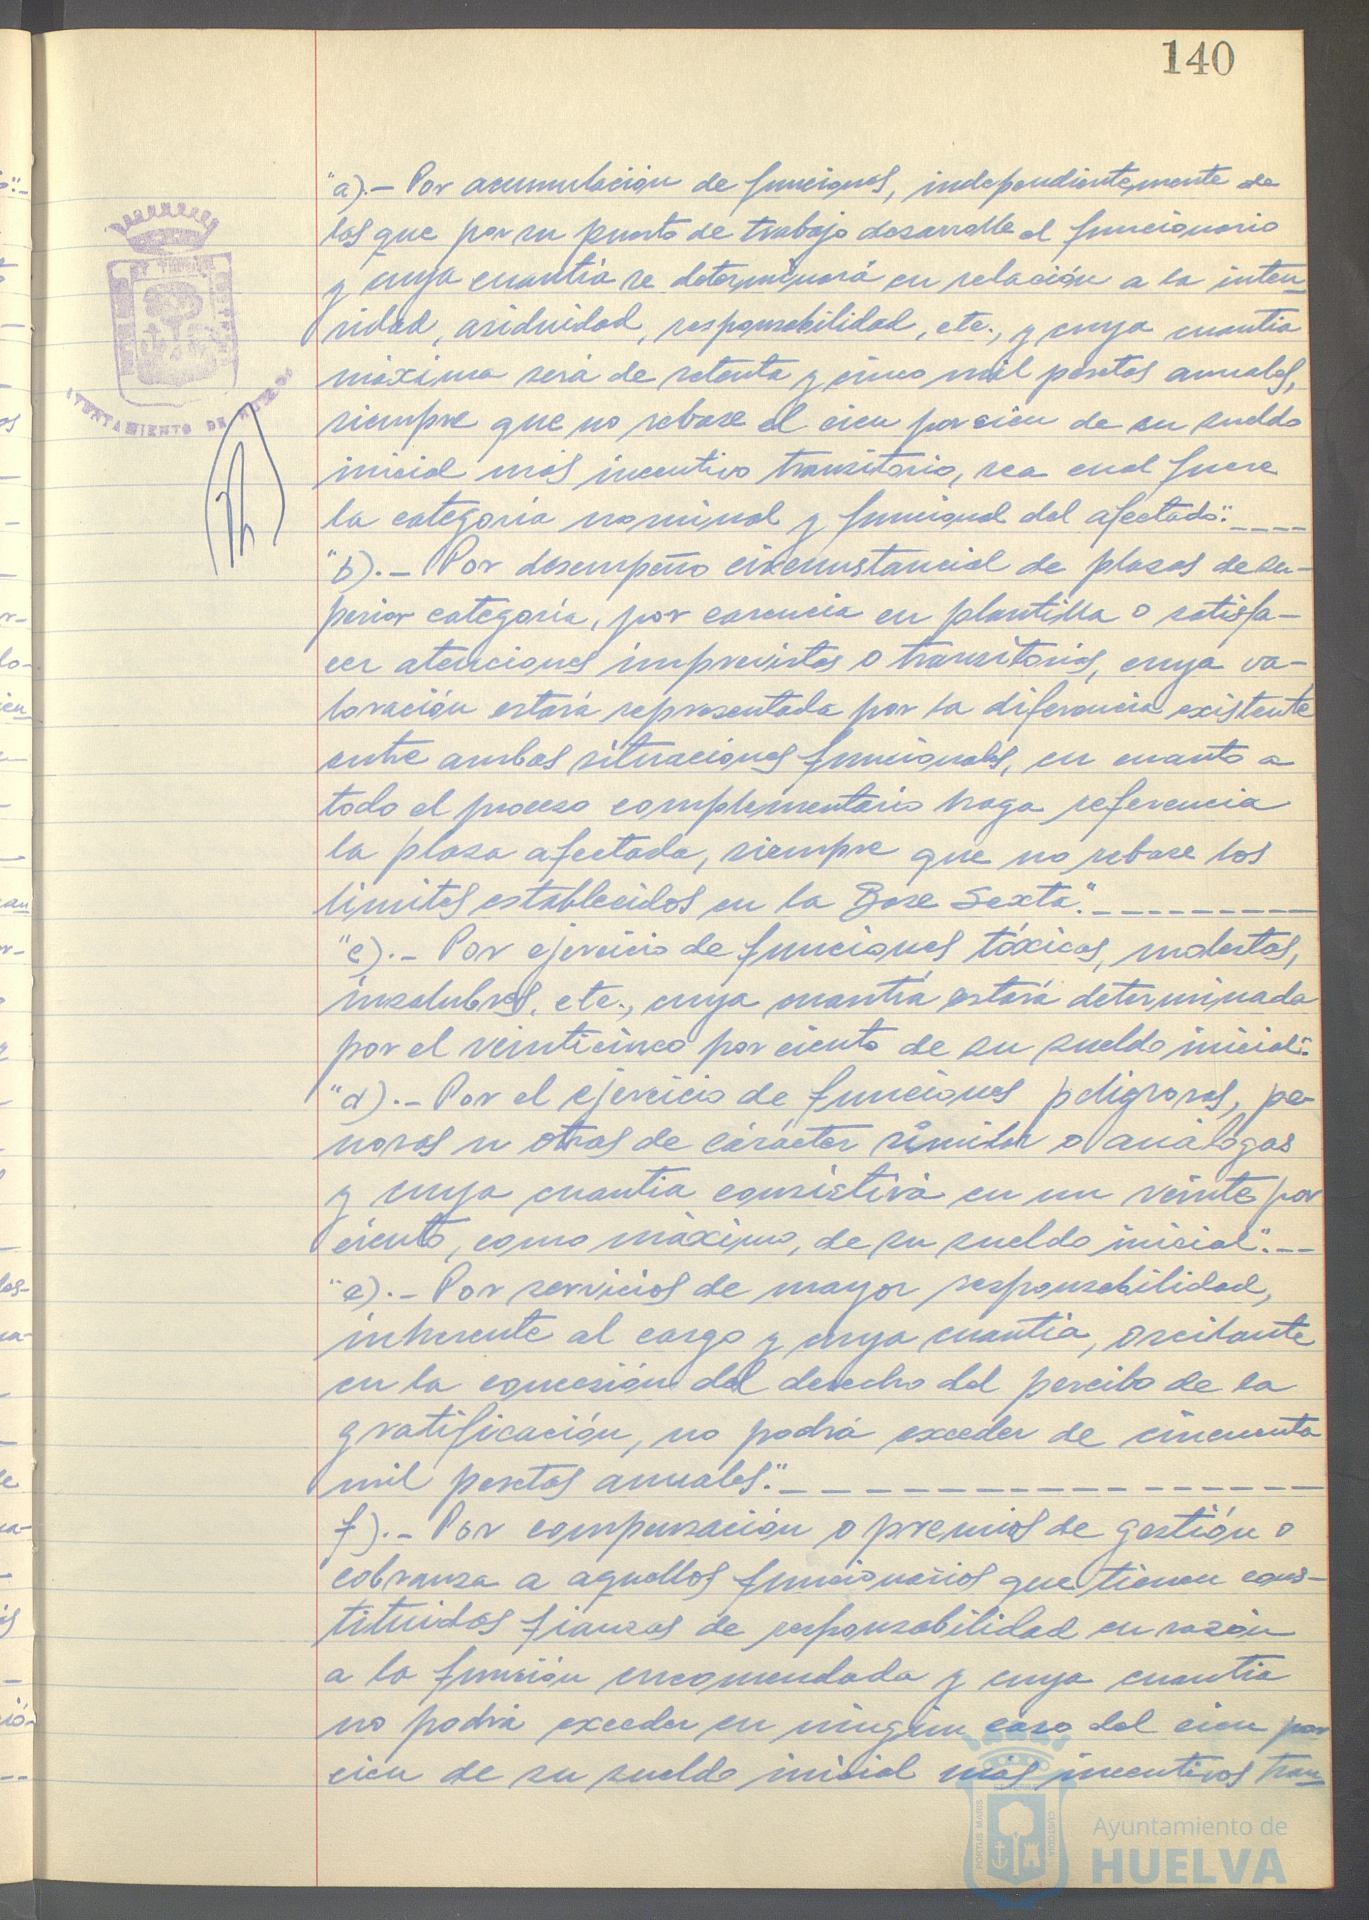 140
"a).- Por acumulación de funciones, independientemente de
las que por su puesto de trabajo desarrolle el funcionario
y cuya cuantía se determinará en relación a la inten
sidad, asiduidad, responsabilidad, etc., y cuya cuantia
máxima será de setenta y cinco mil pesetas anuales,
siempre que no rebase el cien por cien de su sueldo
inicial más incentivo transitorio, sea cual fuere
la categoría nominal y funcional del afectado".----
"b).- Por desempeño circunstancial de plazas de su-
perior categoría, por carencia en plantilla o satisfa-
cer atenciones imprevistas o transitorias, cuya va-
loración estará representada por la diferencia existente
entre ambas situaciones funcionales, en cuanto a
todo el proceso complementario haga referencia
la plaza afectada, siempre que no rebase los
limites establecidos en la Base Sexta".----------
"c).- Por ejercicio de funciones tóxicas, molestas,
insalubres, etc., cuya cuantía estará determinada
por el veinticinco por ciento de su sueldo inicial".
"d).- Por el ejercicio de funciones peligrosas, pe-
nosas u otras de carácter similar o análogas
y cuya cuantia consistirá en un veinte por
ciento, como máximo, de su sueldo inicial".--
"e).- Por servicios de mayor responsabilidad,
inherente al cargo y cuya cuantia, oscilante
en la concesión del derecho del percibo de la
gratificación, no podrá exceder de cincuenta
mil pesetas anuales".------------------
f).- Por compensación o premios de gestión o
cobranza a aquellos funcionarios que tienen cons-
tituidas fianzas de responsabilidad en razón
a la función encomendada y cuya cuantia
no podrá exceder en ningún caso del cien por
cien de su sueldo inicial más incentivos tran
AYUNTAMIENTO DE HUELVA
PORTUS MARIS
CUSTODIA
Ayuntamiento de
HUELVA